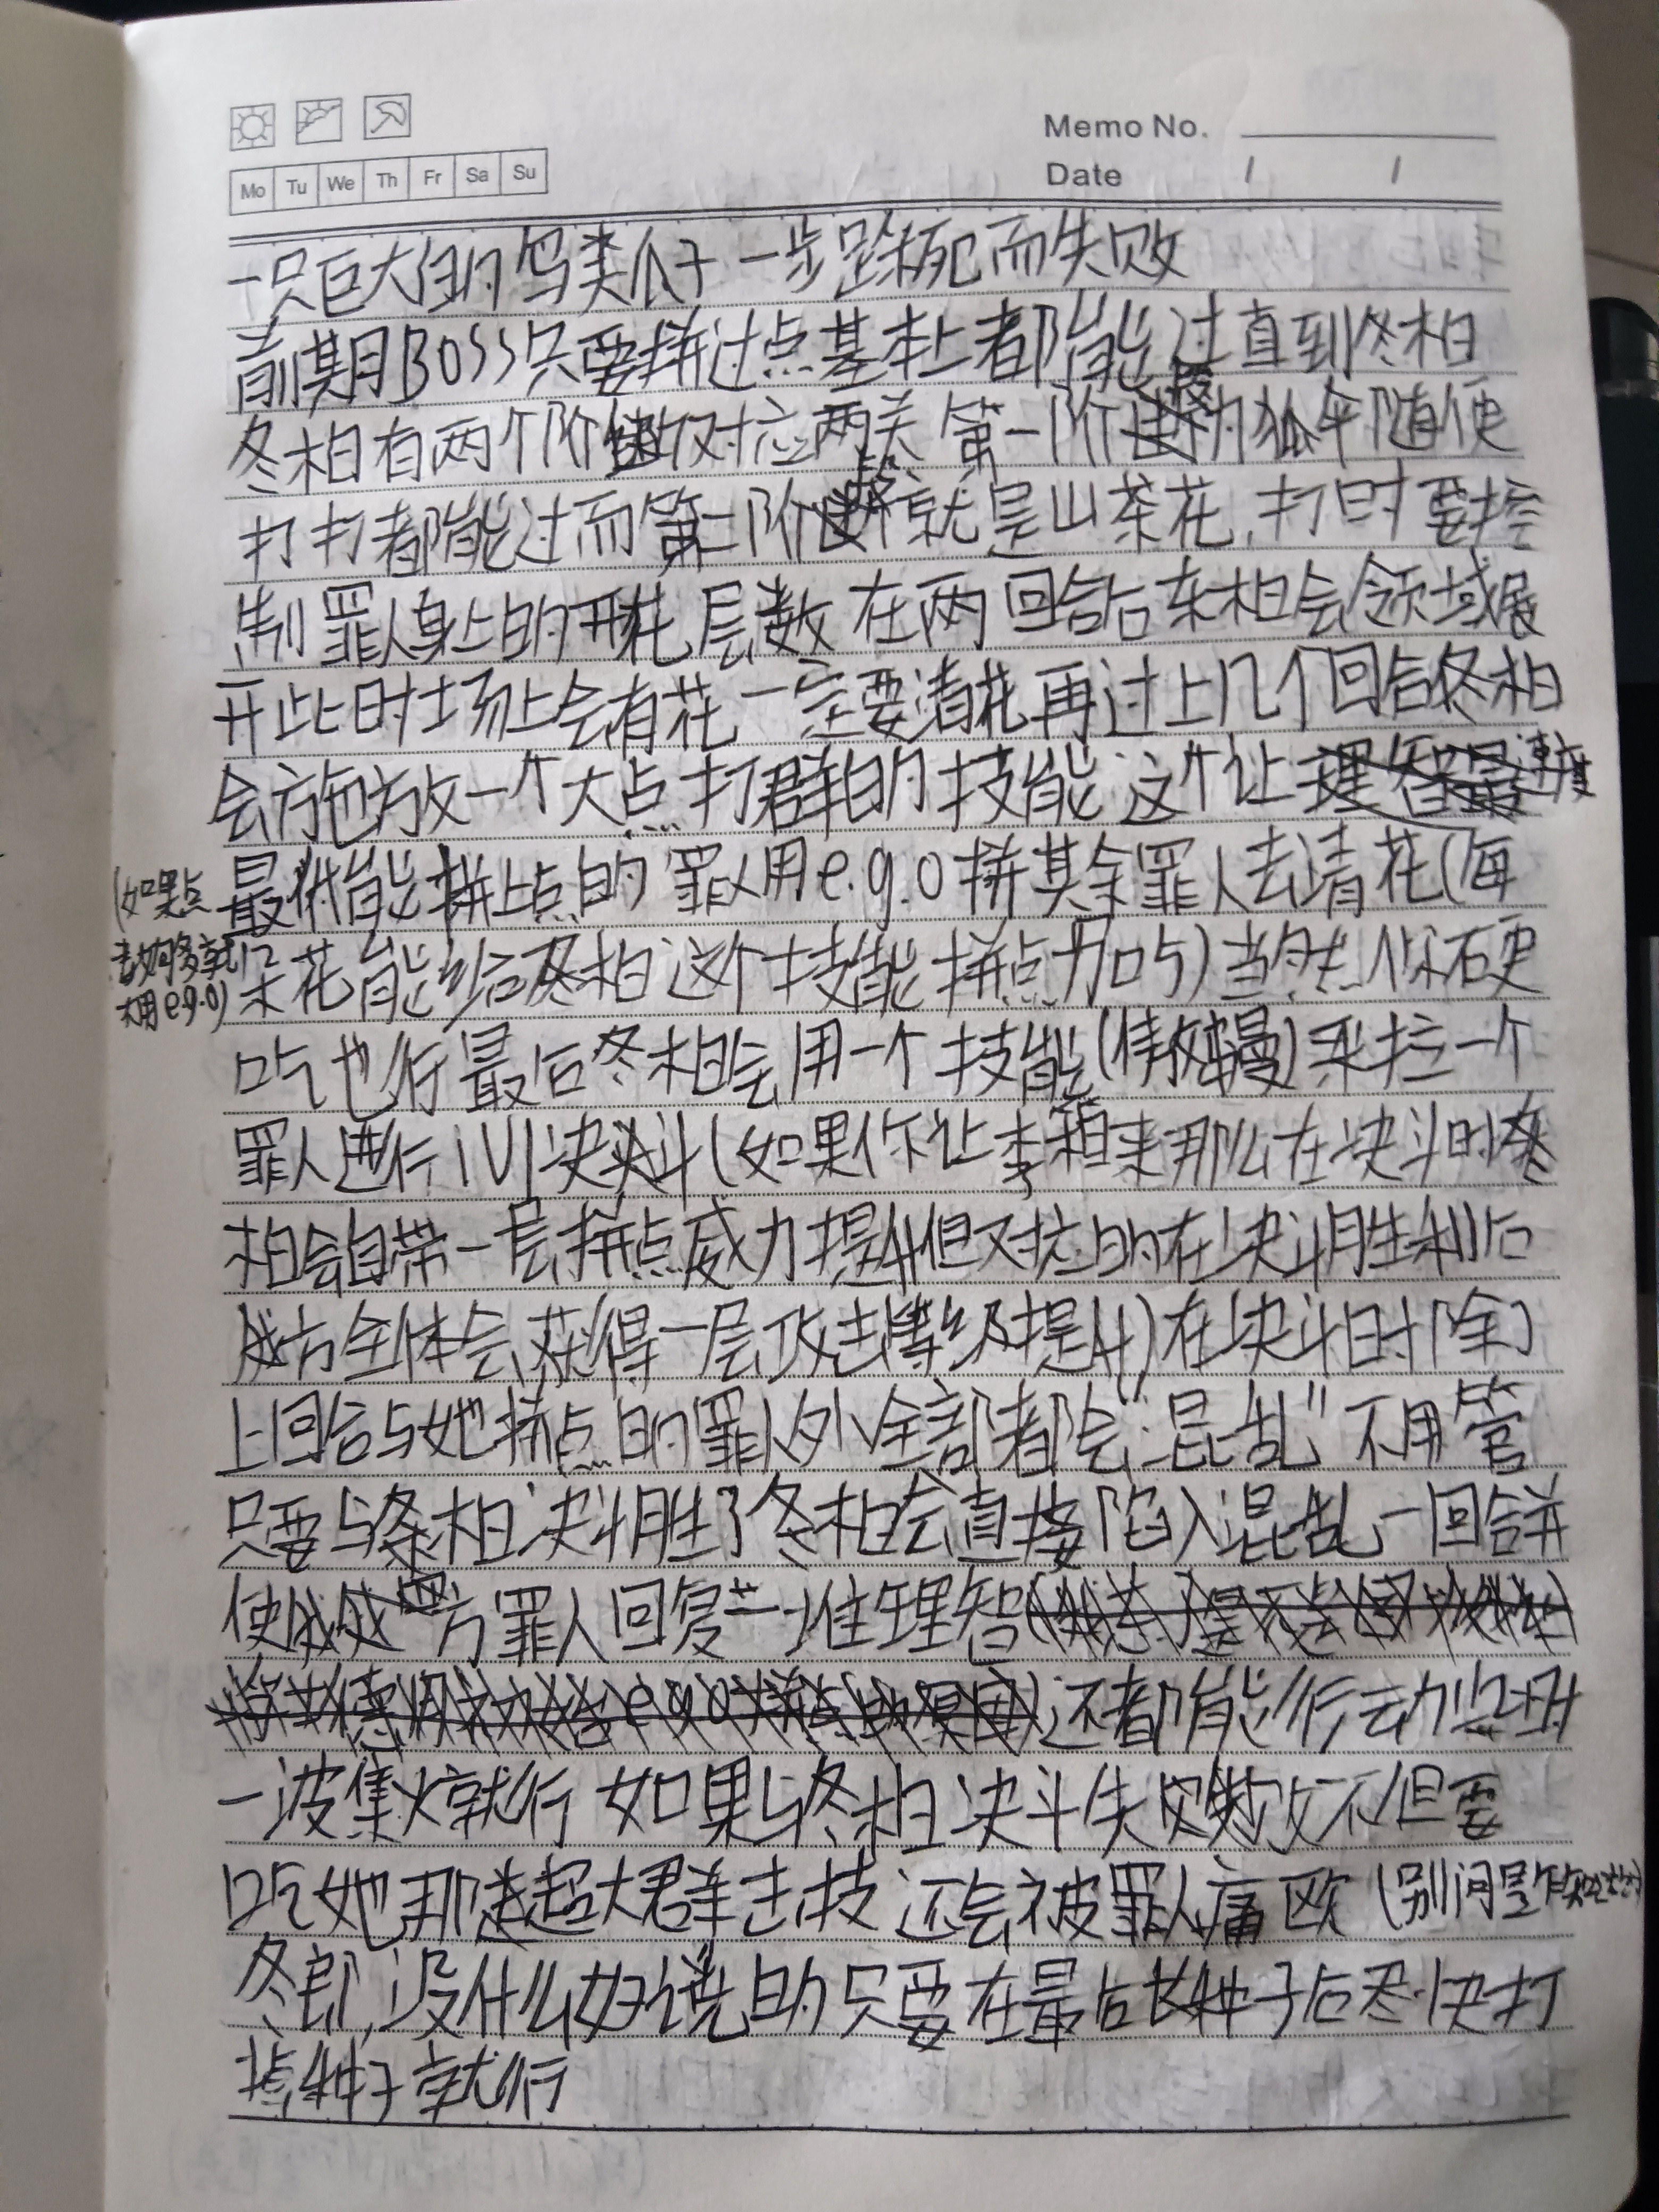 Memo No.
Mo Tu We Th Fr Sa Su
Date / /
一只巨大的鸟类爪子一步踩死而失败
前期BOSS只要拼过点基本上都能过直到冬柏
冬柏有两个阶段对应两关 第一阶段的狐伞随便
打打都能过而第二阶段就是山茶花,打时要控
制罪人身上的开花层数 在两回合后冬柏会领域展
开此时场上会有花一定要清花再过上几个回合冬柏
会施放一个大点打群的技能 这个让速度
最低能拼上点的罪人用e.g.o拼其余罪人去清花(每
(如果点
数够多就
不用e.g.o)
朵花能给冬柏这个技能拼点加5)当然你硬
吃也行最后冬柏会用一个技能()来拉一个
罪人进行1V1决斗(如果你让李箱来那么在决斗时冬
柏会自带一层拼点威力提升但对应的在决斗胜利后
我方全体会获得一层攻击等级提升)在决斗时除了
上回合与她拼点的罪人外全部都会“混乱”不用管
只要与冬柏决斗胜了冬柏会直接陷入混乱一回合并
使我方罪人回复一堆理智
还都能行动此时
一波集火就行 如果与冬柏决斗失败不但要
吃她那超大群击技 还会被罪人痛殴(别问是怎
冬郎,没什么好说的只要在最后长种子后尽快打
掉种子就行